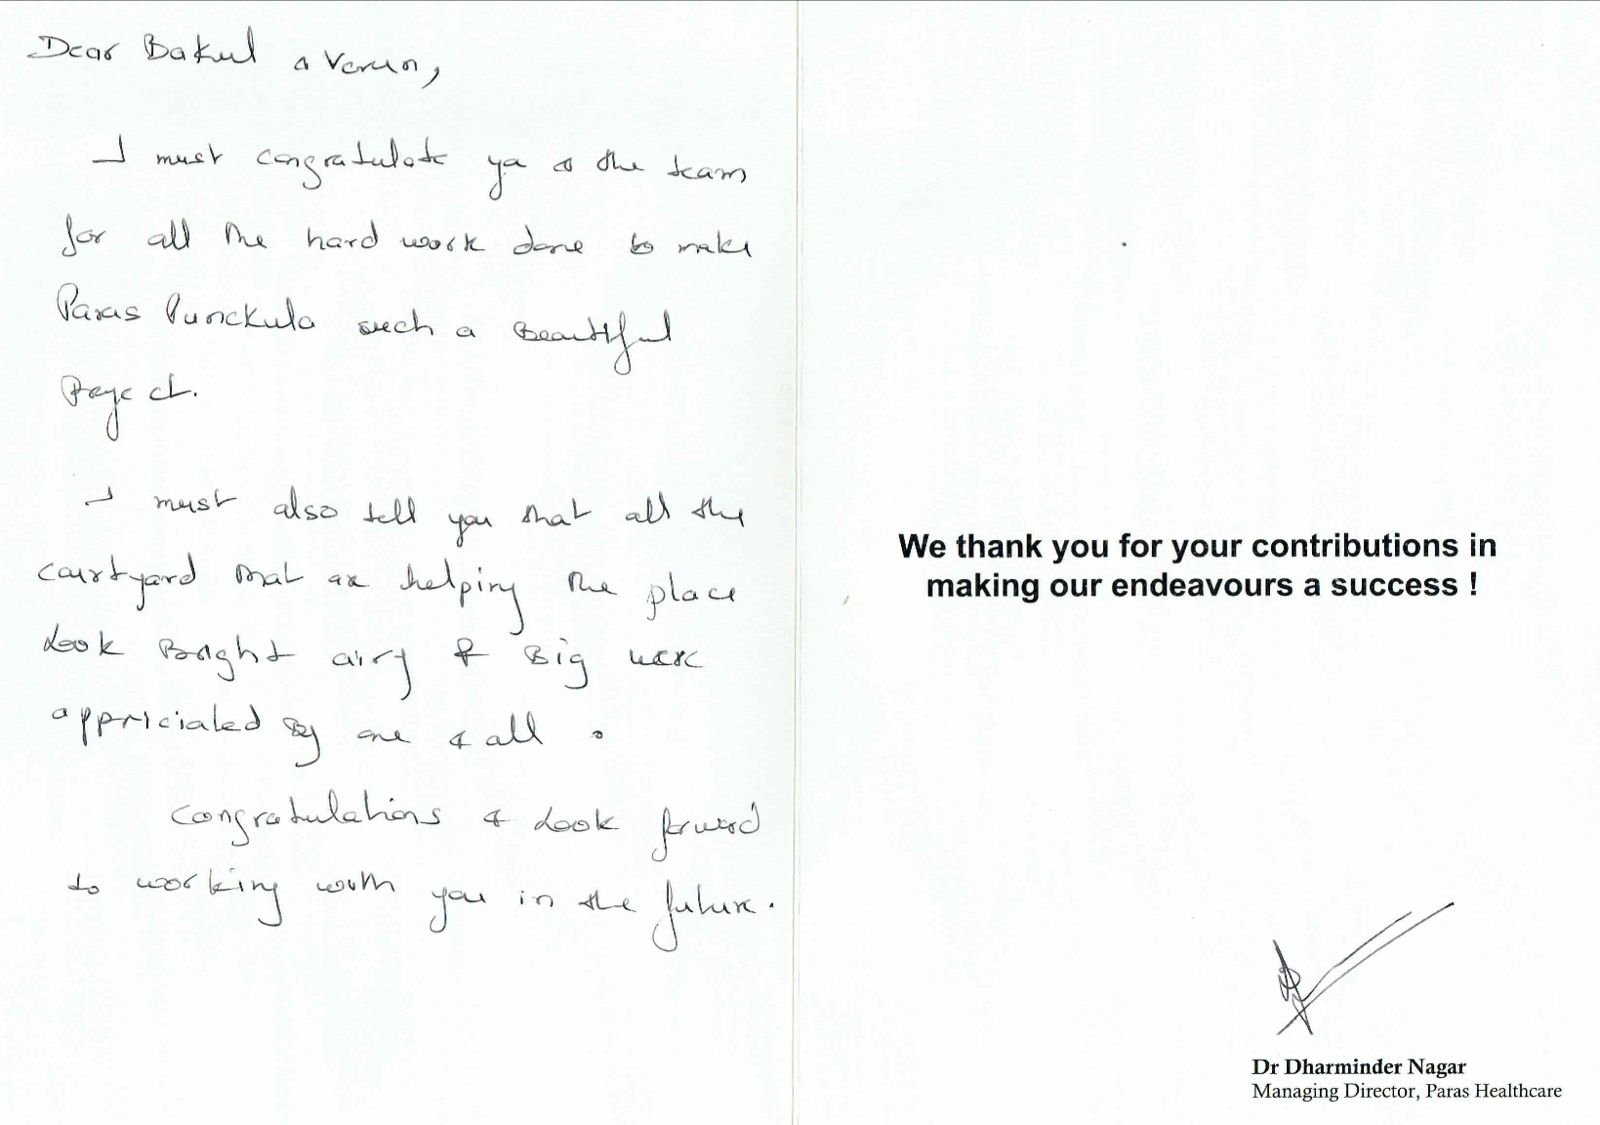 Dear Bakul & Varun,
I must congratulate you & the team
for all the hard work done to make
Paras Punckula such a Beautiful
Project.
I must also tell you that all the
courtyard that are helping the place
Look Bright airy & Big were
appriciated By one & all.
Congratulations & Look forward
to working with you in the future.
We thank you for your contributions in
making our endeavours a success !
Dr Dharminder Nagar
Managing Director, Paras Healthcare